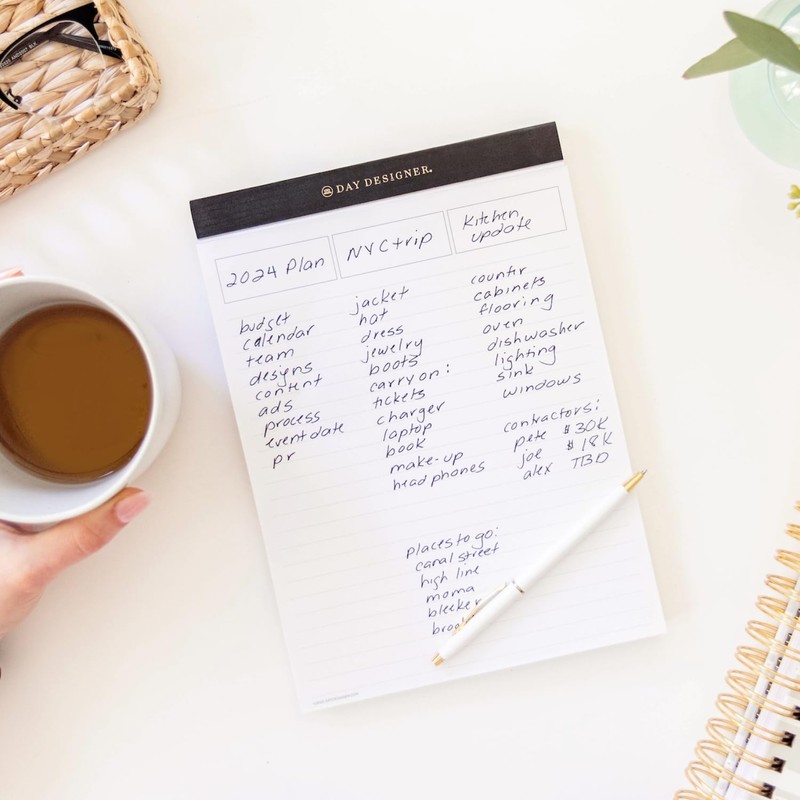 DAY DESIGNER.
2024 Plan
budget
calendar
team
designs
content
ads
process
event date
pr
NYC trip
jacket
hat
dress
jewelry
boots
carry on:
tickets
charger
laptop
book
make-up
headphones
places to go:
canal street
high line
moma
bleeker
Kitchen
update
countir
cabinets
flooring
oven
dishwasher
lighting
sink
windows
contractors:
pete $30K
joe $18K
alex TBD